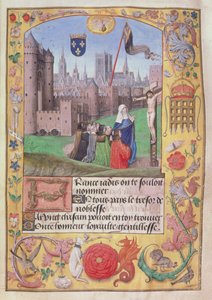 France iadis on te souloit
nommer
En tous pays le tresor de
noblesse
Car ung chascun pouoit en toy trouuer
Bonte honneur loyaulte gentillesse